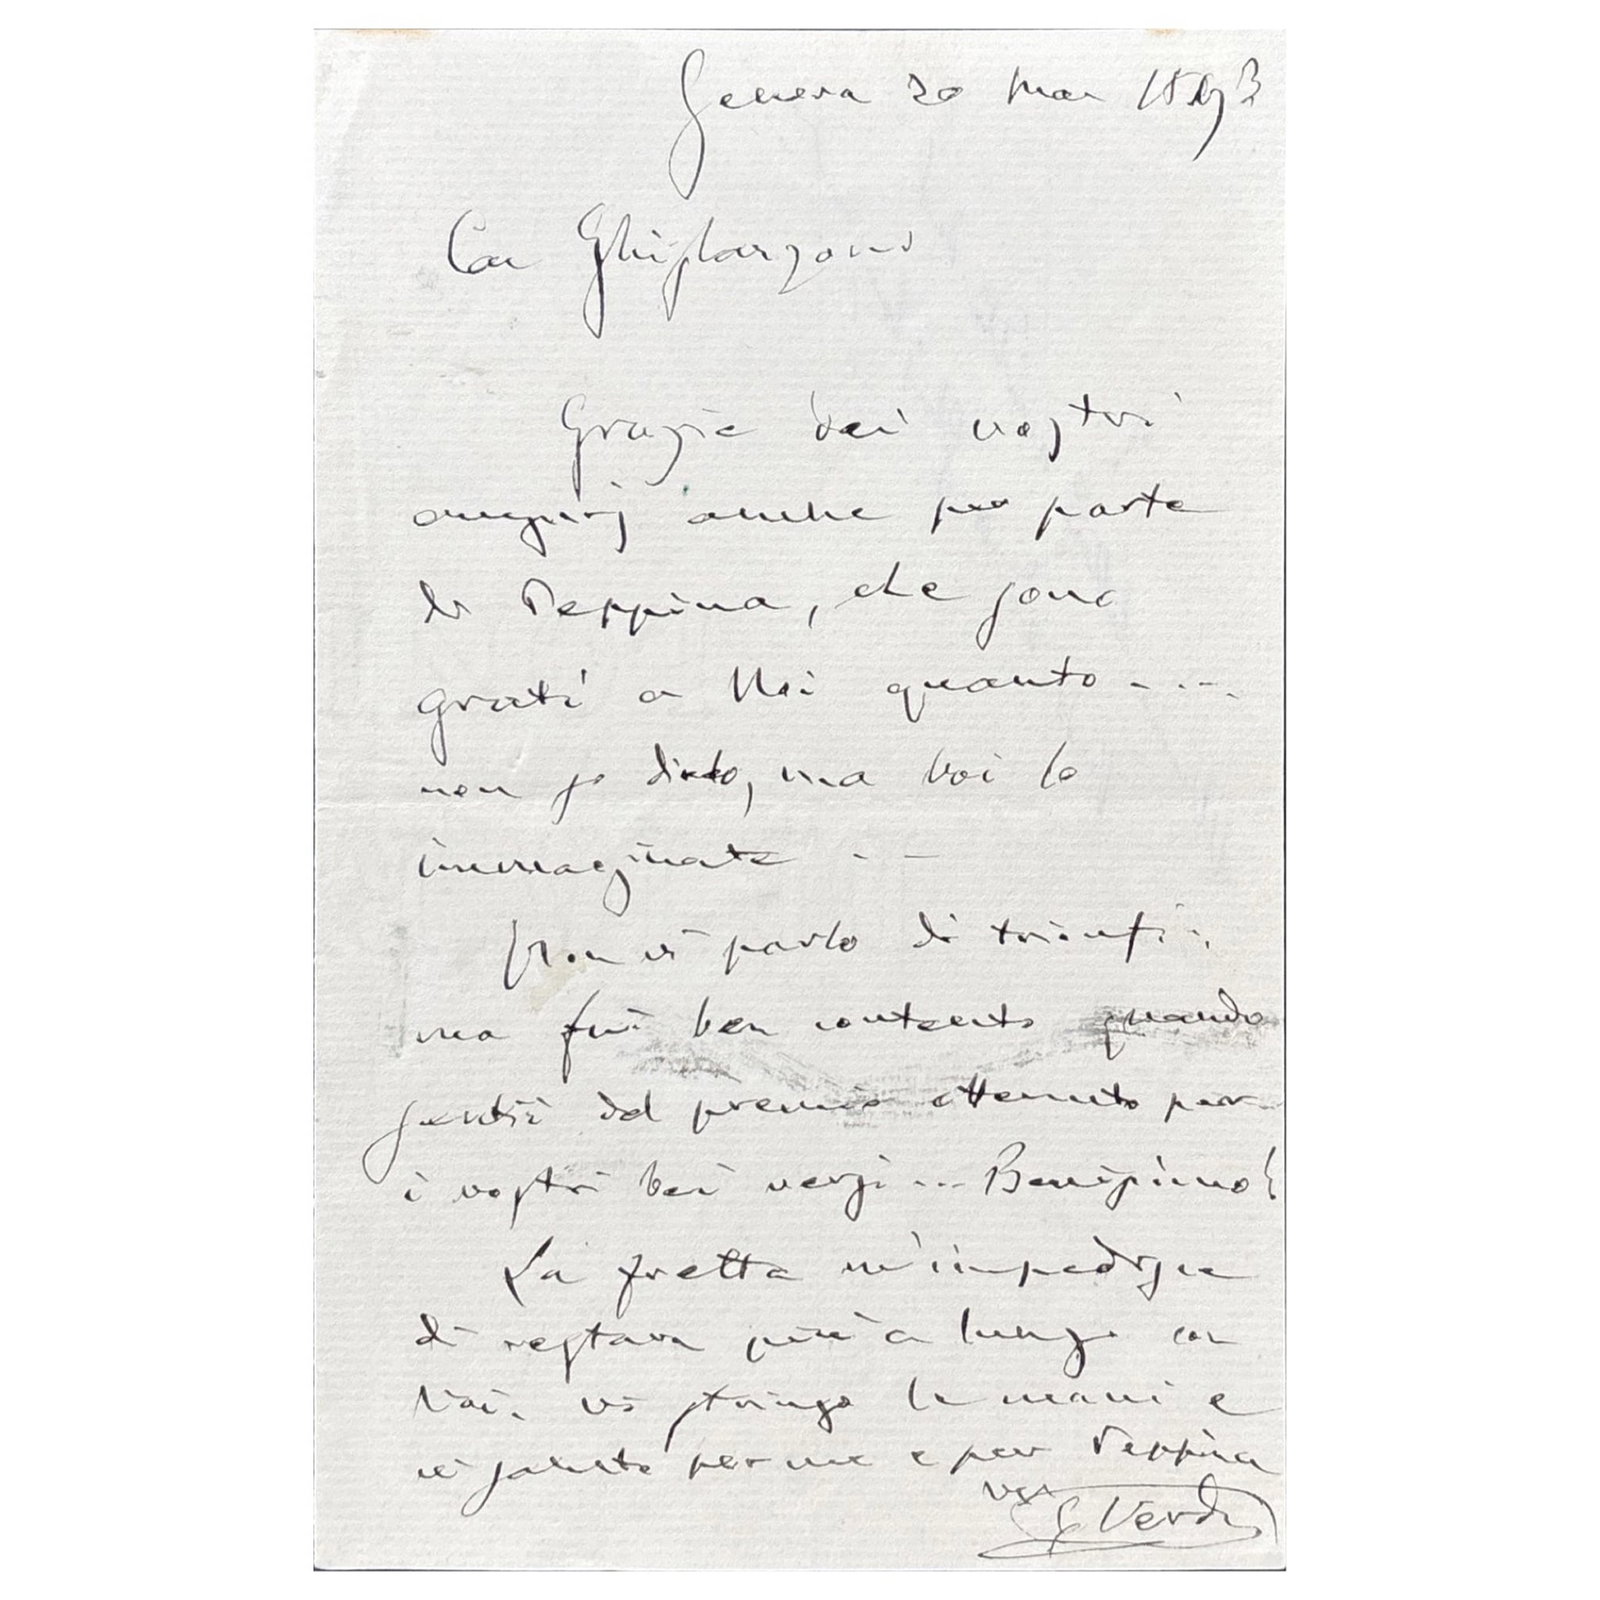 Genova 20 Mar 1893
Car Ghislanzoni
Grazie dei vostri
augurj anche per parte
di Peppina, che sono
grati a Voi quanto ....
non so dirlo, ma Voi lo
immaginate . --
Non vi parlo di trionfi..
ma fui ben contento quando
sentii del premio ottenuto per
i vostri bei versi ... Benissimo!
La fretta m'impedisce
di restare più a lungo con
Voi. Vi stringo le mani e
vi saluto per me e per Peppina
G Verdi